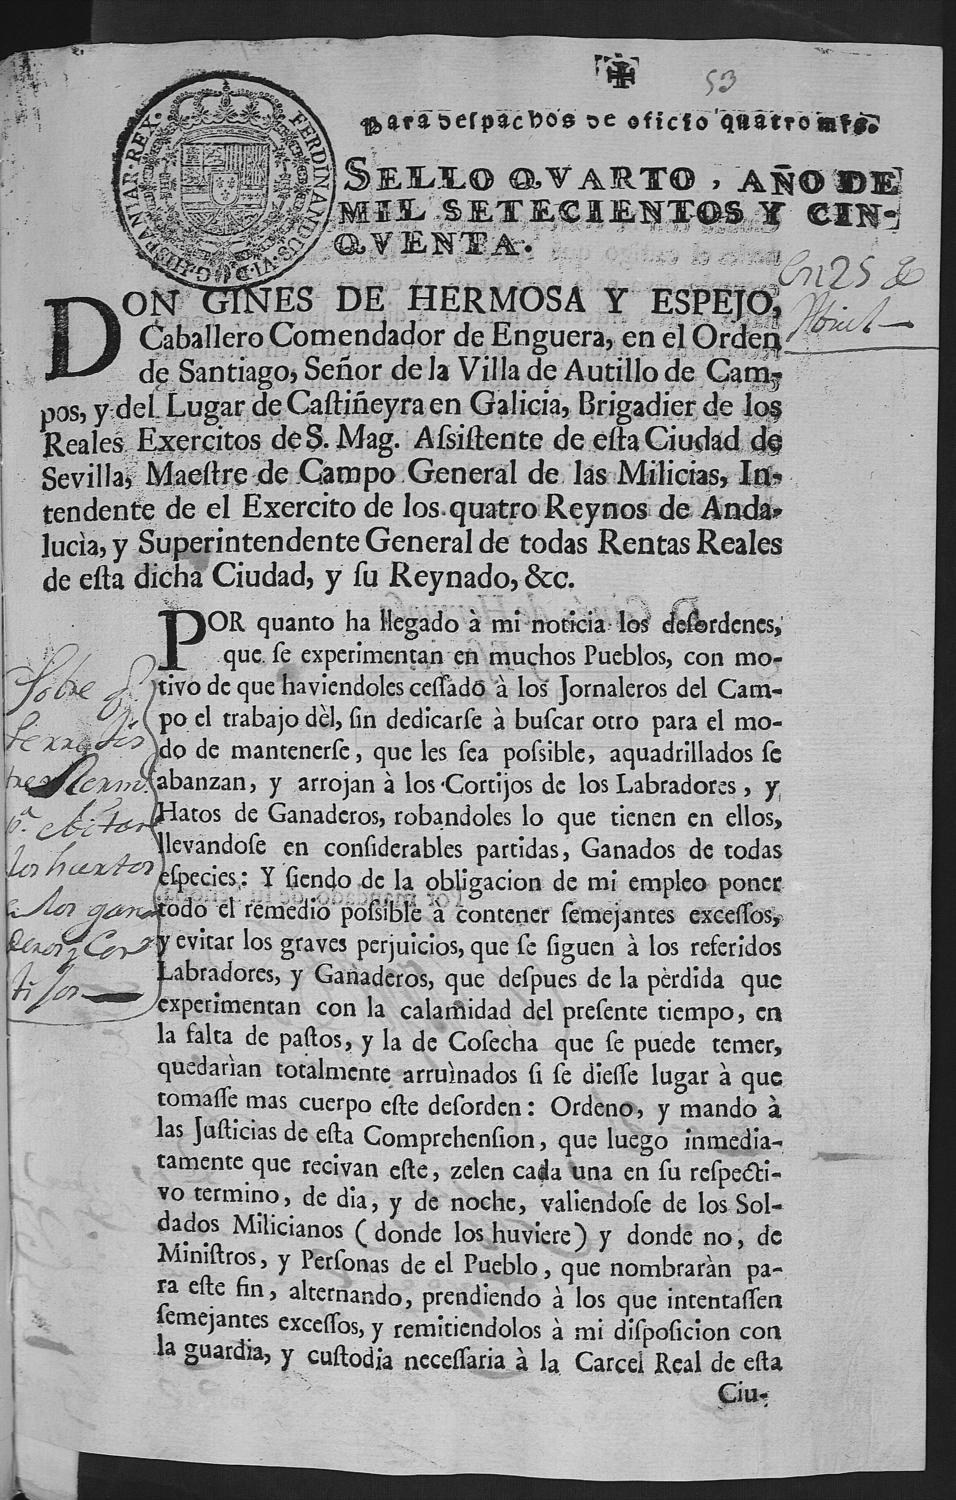 53
Para despachos de oficio quatro mrs.
FERDINANDUS·VI·D·G·HISPANIAR·REX·
SELLO QVARTO, AÑO DE
MIL SETECIENTOS Y CIN-
QVENTA.
En 25 de
DON GINES DE HERMOSA Y ESPEJO,
Caballero Comendador de Enguera, en el Orden
de Santiago, Señor de la Villa de Autillo de Cam-
pos, y del Lugar de Caſtiñeyra en Galicia, Brigadier de los
Reales Exercitos de S. Mag. Aſsiſtente de eſta Ciudad de
Sevilla, Maeſtre de Campo General de las Milicias, In-
tendente de el Exercito de los quatro Reynos de Anda-
lucìa, y Superintendente General de todas Rentas Reales
de eſta dicha Ciudad, y ſu Reynado, &c.
POR quanto ha llegado à mi noticia los deſordenes,
que ſe experimentan en muchos Pueblos, con mo-
tivo de que haviendoles ceſſado à los Jornaleros del Cam-
po el trabajo dèl, ſin dedicarſe à buſcar otro para el mo-
do de mantenerſe, que les ſea poſsible, aquadrillados ſe
abanzan, y arrojan à los Cortijos de los Labradores, y
Hatos de Ganaderos, robandoles lo que tienen en ellos,
llevandoſe en conſiderables partidas, Ganados de todas
eſpecies: Y ſiendo de la obligacion de mi empleo poner
todo el remedio poſsible à contener ſemejantes exceſſos,
y evitar los graves perjuicios, que ſe ſiguen à los referidos
Labradores, y Ganaderos, que deſpues de la pèrdida que
experimentan con la calamidad del preſente tiempo, en
la falta de paſtos, y la de Coſecha que ſe puede temer,
quedarìan totalmente arruìnados ſi ſe dieſſe lugar à que
tomaſſe mas cuerpo eſte deſorden: Ordeno, y mando à
las Juſticias de eſta Comprehenſion, que luego inmedia-
tamente que recivan eſte, zelen cada una en ſu reſpecti-
vo termino, de dia, y de noche, valiendoſe de los Sol-
dados Milicianos (donde los huviere) y donde no, de
Miniſtros, y Perſonas de el Pueblo, que nombraràn pa-
ra eſte fin, alternando, prendiendo à los que intentaſſen
ſemejantes exceſſos, y remitiendolos à mi diſpoſicion con
la guardia, y cuſtodia neceſſaria à la Carcel Real de eſta
Ciu-
Sobre q
evitar
los hurtos
a los gana
deros y Cor
tijos